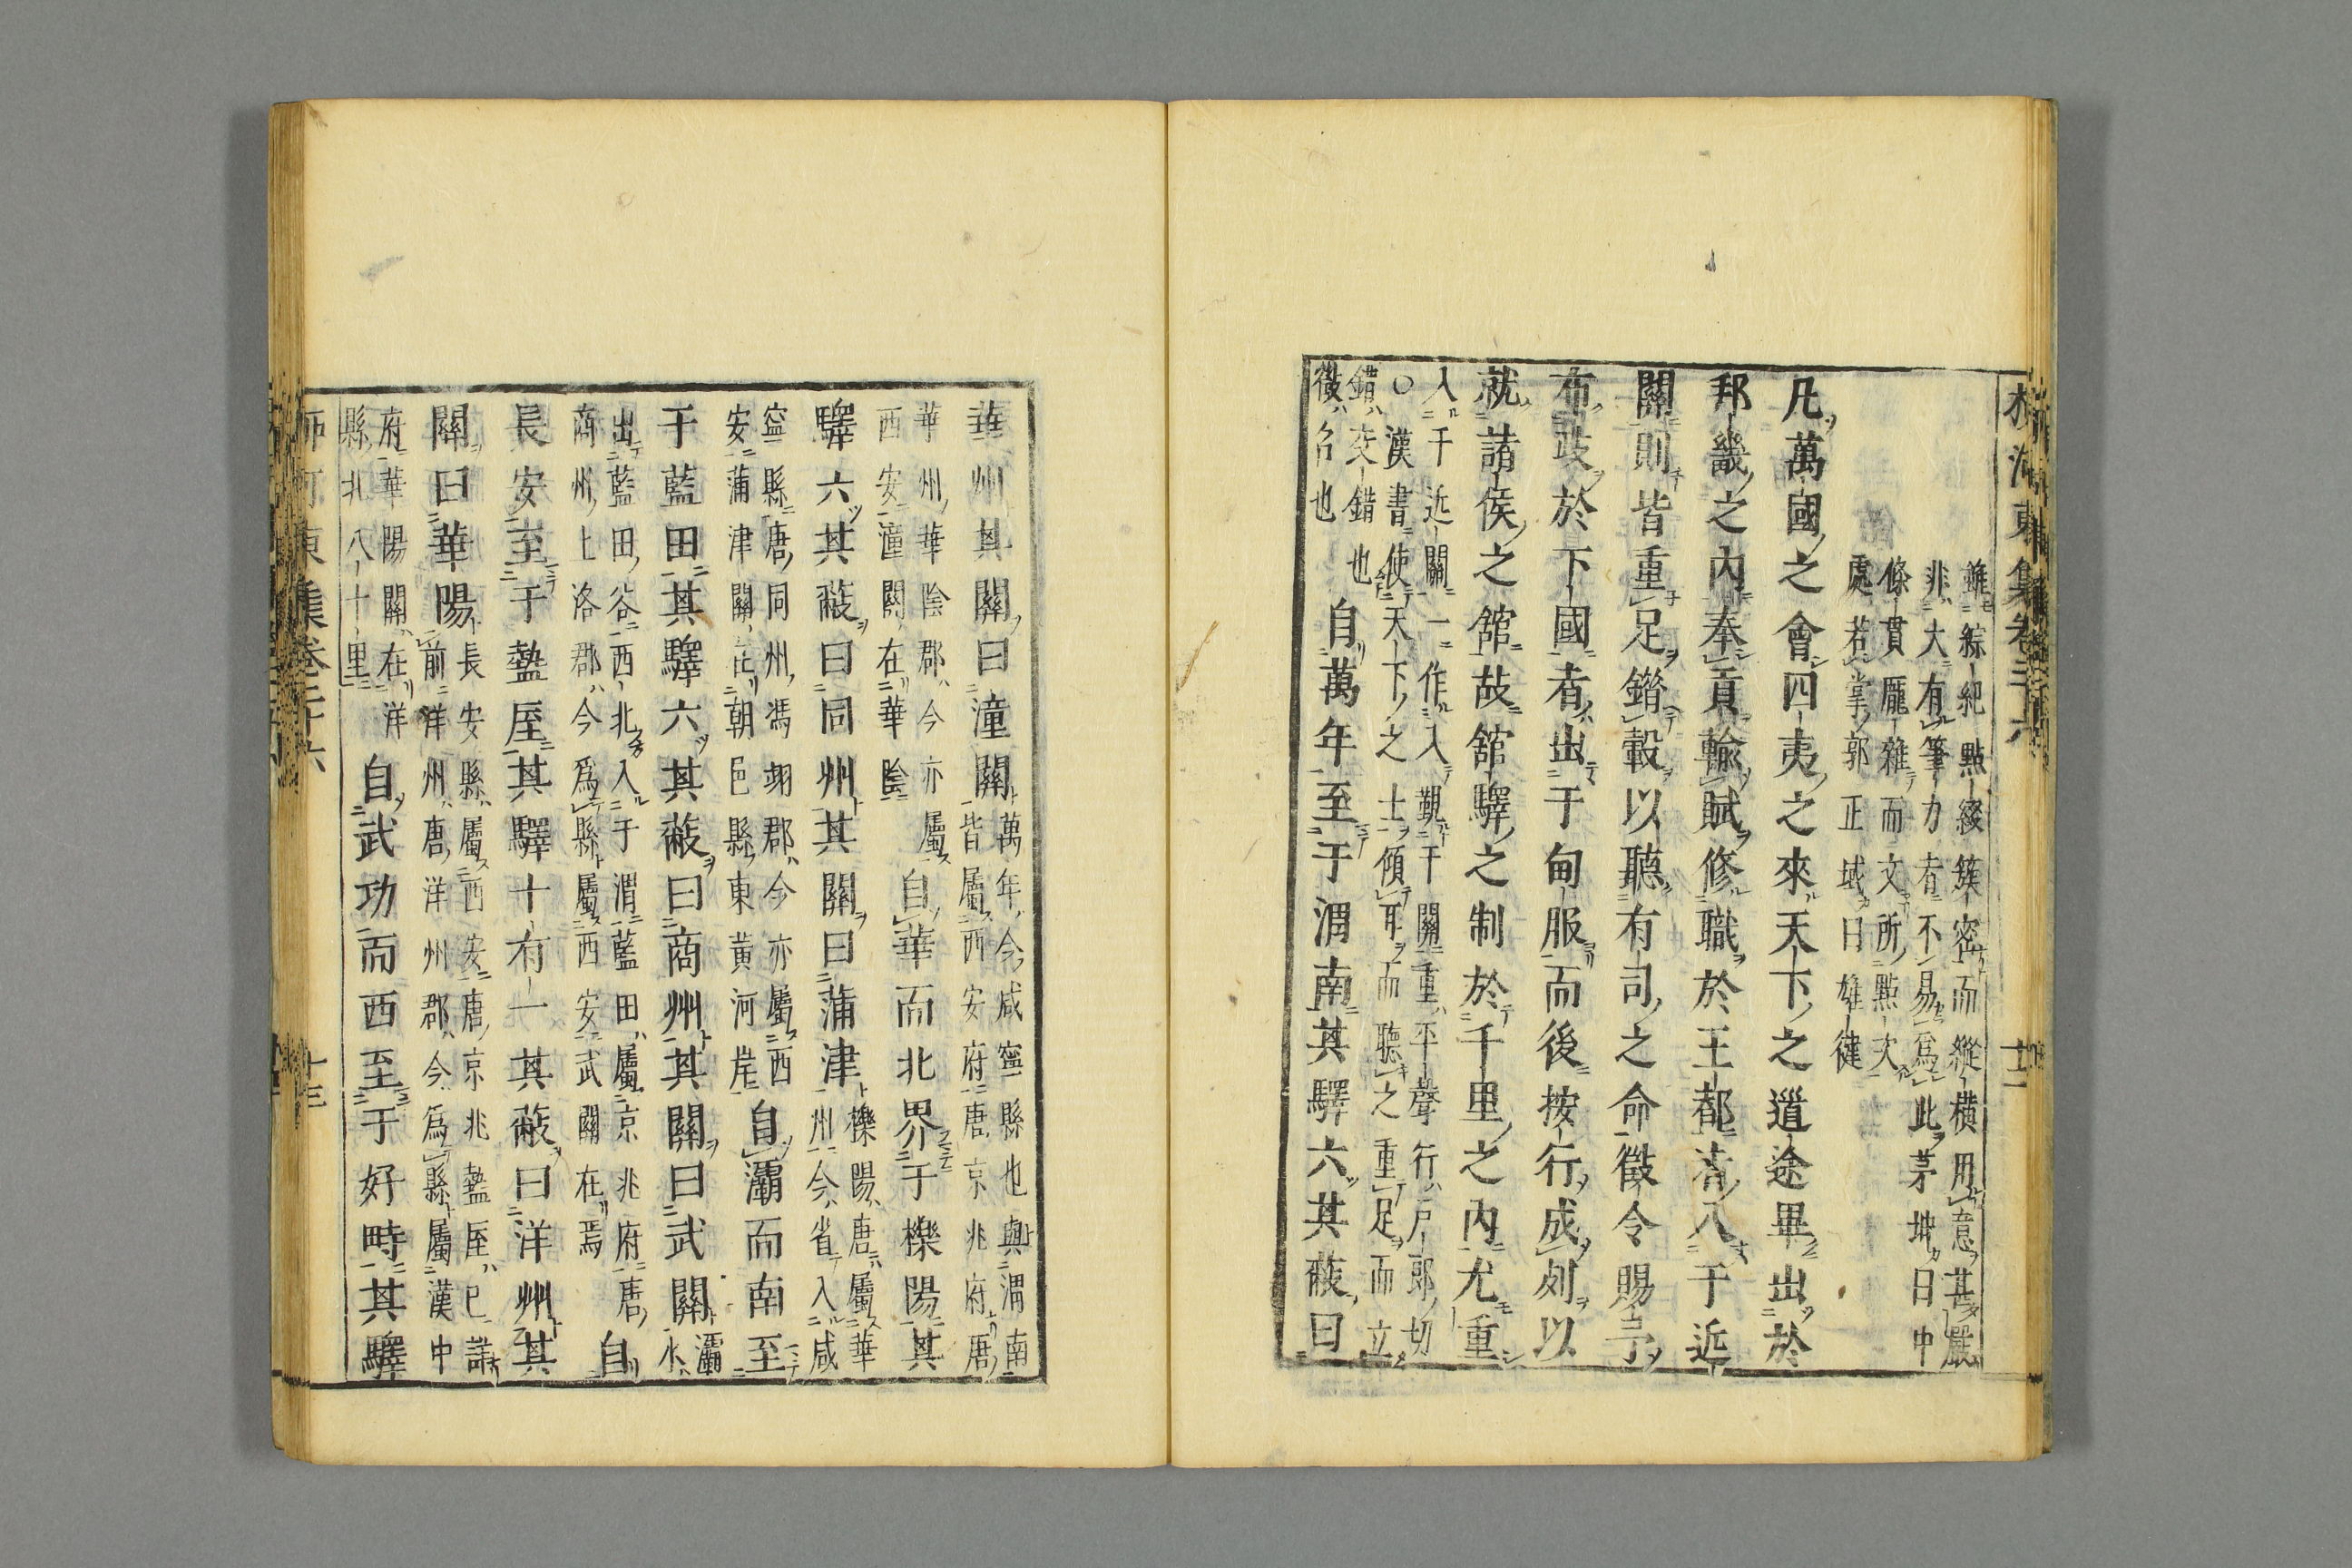 雖綜紀點綴簇密而縱橫用意甚嚴
非大有筆力者不易爲此茅坤曰中
條貫厖雜而文所點次
處若掌郭正域曰雄健
凡萬國之會四夷之來天下之道途畢出於
邦畿之內奉貢輸賦修職於王都者入于近
關則皆重足錯轂以聽有司之命徵令賜予
布政於下國者出于甸服而後按行成列以
就諸侯之館故館驛之制於千里之內尤重
入于近關一作入覲于關重平聲行戶郎切
○漢書使天下之士傾耳而聽之重足而立
錯交錯也
蕝名也
自萬年至于渭南其驛六其蕝曰
華州其關曰潼關
萬年今咸寧縣也與渭南
皆屬西安府唐京兆府唐
華州華陰郡今亦屬
西安潼關在華陰
自華而北界于櫟陽其
驛六其蕝曰同州其關曰蒲津
櫟陽唐屬華
州今省入咸
寧縣唐同州馮翊郡今亦屬西
安蒲津關在朝邑縣東黃河岸
自灞而南至
于藍田其驛六其蕝曰商州其關曰武關
灞水
出藍田谷西北入于渭藍田屬京兆府唐
商州上洛郡今爲縣屬西安武關在焉
自
長安至于盩厔其驛十有一其蕝曰洋州其
關曰華陽
長安縣屬西安唐京兆盩厔已詳
前洋州唐洋州郡今爲縣屬漢中
府華陽關在洋
縣北八十里
自武功而西至于好畤其驛